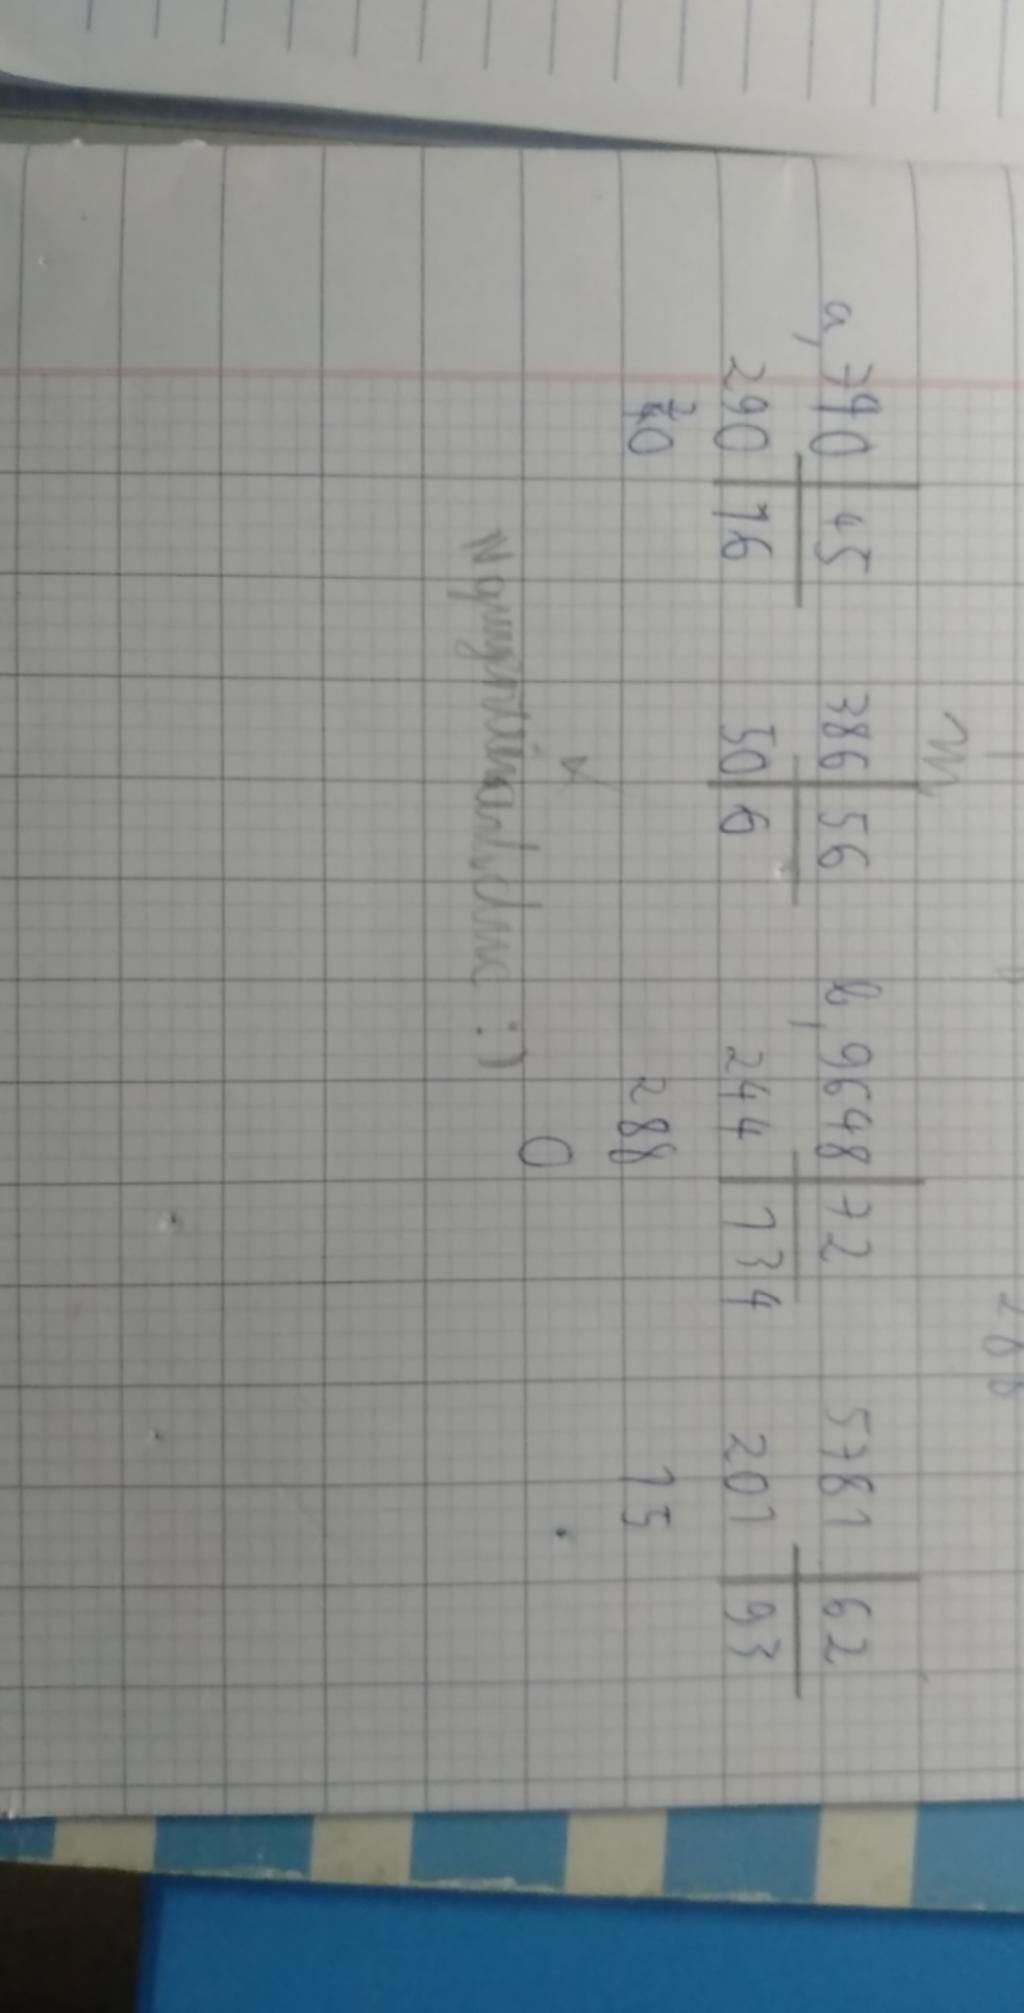 288
a, 790 45 386 56 b, 9648 72 5781 62
290 16 50 6 244 134 201 93
70 288 15
0